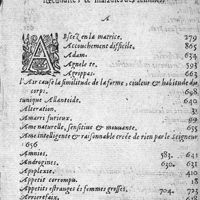 maladies des femmes.
A
Abscez en la matrice, 279
Accouchement difficile, 865
Adam. 634
Agnelette. 593
Agrippas. 663
l'Air cause la similitude de la forme, couleur & habitude du
corps. 648
tunique Allantoide, 640
Alteration. 31
Amarri furieux. 99
Ame naturelle, sensitiue & mouuante. 655
Ame intelligente & raisonnable creée de rien par le Seigneur
656
Amnios, 583. 641
Androgines, 630. 631
Apoplexie, 410
Appetit corrompu. 18
Appetits estranges és femmes grosses, 704. 723